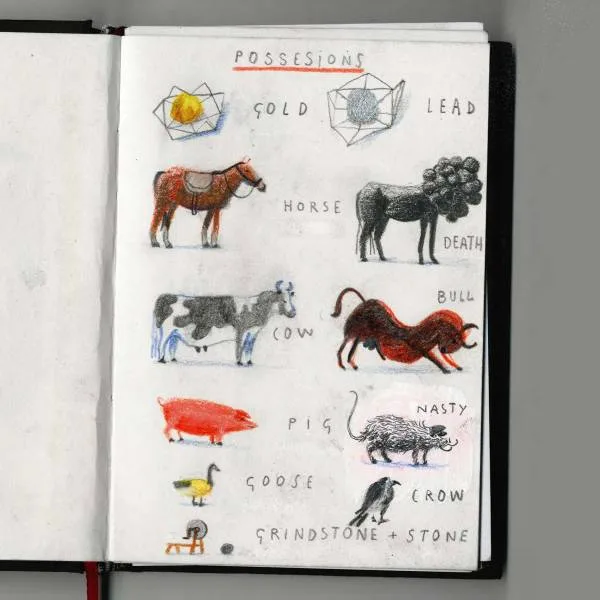 POSSESIONS
GOLD
LEAD
HORSE
DEATH
COW
BULL
PIG
NASTY
GOOSE
CROW
GRINDSTONE + STONE